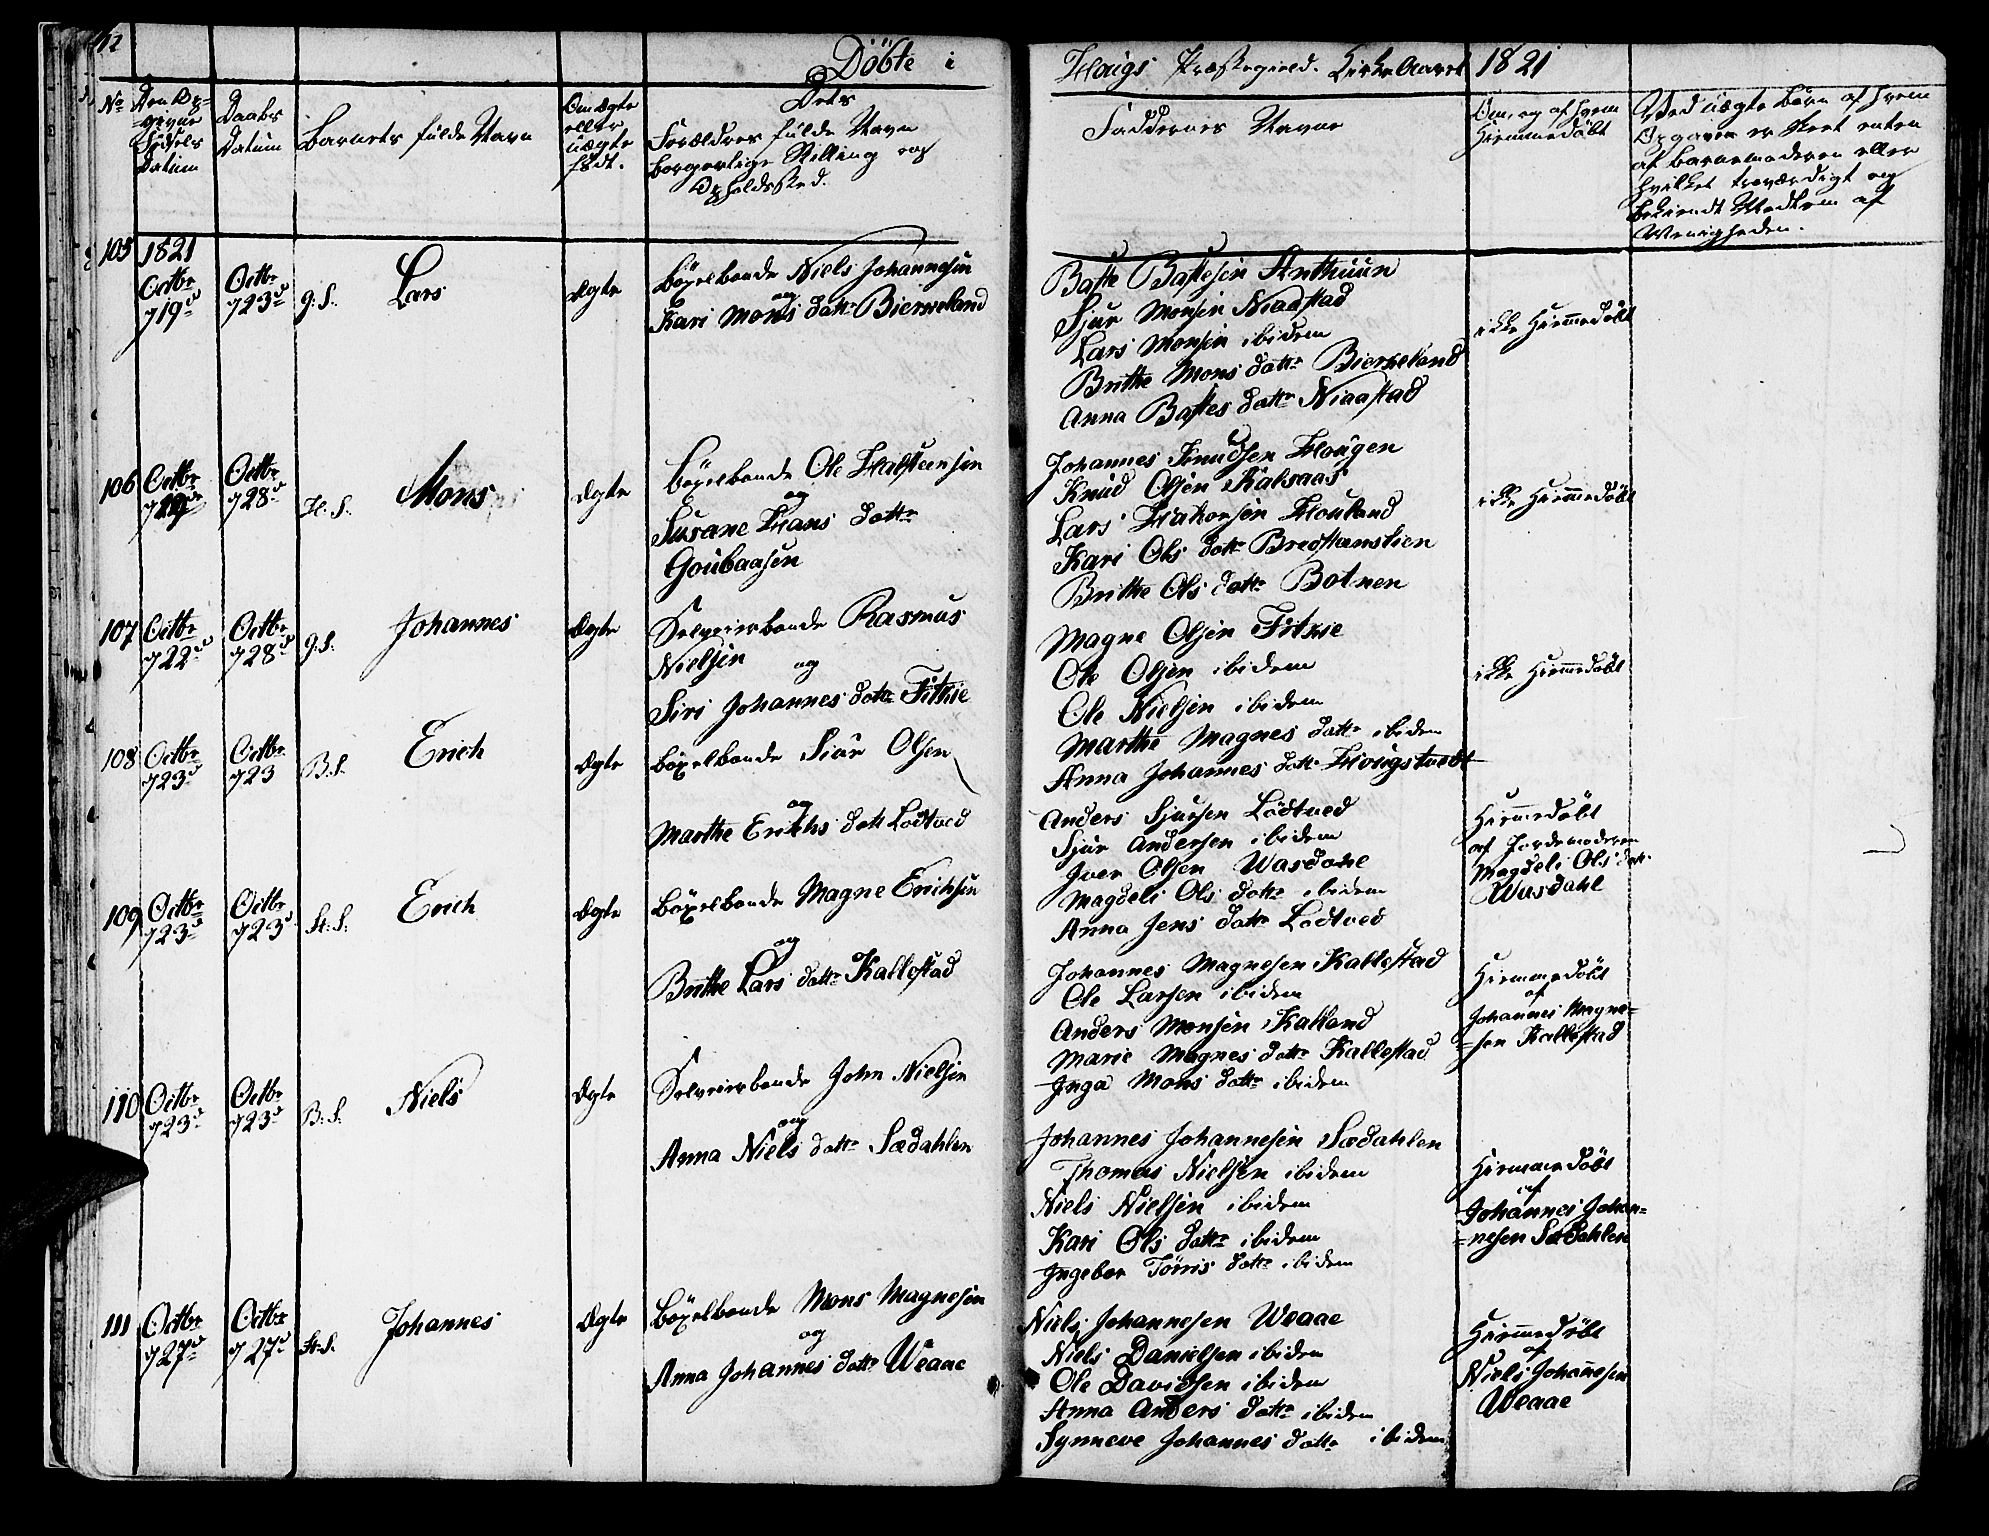 Döbte i Hougs Præstegield. Kirke Aaret 1821
No
Den Op-
givne
Födsels
Datum
Daabs
Datum
Barnets fulde Navn
Om ægte
eller
uægte
födt.
Dets
Forældres fulde Navn
borgerlige Stilling og
Opholdssted.
Faddernes Navne
Om, og af hvem
Hiemmedöbt
Ved uægte börn af hvem
Opgaven er skeet enten
af barnemoderen eller
hvilket troværdigt og
bekiendt Medlem af
Menigheden.
105 1821
Octbr 19d
Octbr 23d
g. S.
Lars
Ægte
Böxelbonde Niels Johannesen
og
Kari Mons datt. Bierkeland
Baste Bastesen Arthuun
Sjur Monsen Niaastad
Lars Monsen ibidem
Brithe Mons datt. Bierkeland
Anna Bastes datt. Niaastad
ikke Hiemmedöbt
106 Octbr
Octbr 28d
H. S.
Mons
Ægte
Böxelbonde Ole Halsteensen
og
Susane Hans datt.
Goubaasen
Johannes Knudsen Hougen
Knud Olsen Kalsaas
Lars Hakonsen Houland
Kari Ols datt. Bredstenslien
Brithe Ols datt. Botnen
ikke Hiemmedöbt
107 Octbr 22d
Octbr 28d
g. S.
Johannes
Ægte
Selveierbonde Rasmus
Nielsen og
Siri Johannes datt. Fitkie
Magne Olsen Fitkie
Ole Olsen ibidem
Ole Nielsen ibidem
Marthe Magnes datt. ibidem
Anna Johannes datt. Hougstvedt
ikke Hiemmedöbt
108 Octbr 23d
Octbr 23
B. S.
Erich
Ægte
Böxelbonde Siur Olsen
og
Marthe Erichs datt Lodtved
Anders Sjursen Lödtved
Sjur Andersen ibidem
Iver Olsen Wasdahl
Magdeli Ols datt. ibidem
Anna Jens datt. Lodtved
Hiemmedöbt
af Jordemoderen
Magdeli Ols datt.
Wasdahl
109 Octbr 23d
Octbr 23d
St. S.
Erich
Ægte
Böxelbonde Magne Erichsen
og
Brithe Lars datt. Kallestad
Johannes Magnesen Kallestad
Ole Larsen ibidem
Anders Monsen Kalland
Marie Magnes datt. Kallestad
Inga Mons datt. ibidem
Hiemmedöbt
af
Johannes Magne-
-sen Kallestad
110 Octbr 23d
Octbr 23d
B. S.
Niels
Ægte
Selveierbonde John Nielsen
og
Anna Niels datt. Sædahlen
Johannes Johannesen Sædahlen
Thomas Nielsen ibidem
Niels Nielsen ibidem
Kari Ols datt. ibidem
Ingebor Törris datt. ibidem
Hiemmedöbt
af
Johannes Johan-
-nesen Sædahlen
111 Octbr 27d
Octbr 27d
St. S.
Johannes
Ægte
Böxelbonde Mons Magnesen
og
Anna Johannes datt. Weaae
Niels Johannesen Weaae
Niels Danielsen ibidem
Ole Davidsen ibidem
Anna Anders datt. ibidem
Synneve Johannes datt. ibidem
Hiemmedöbt
af
Niels Johannesen
Weaae